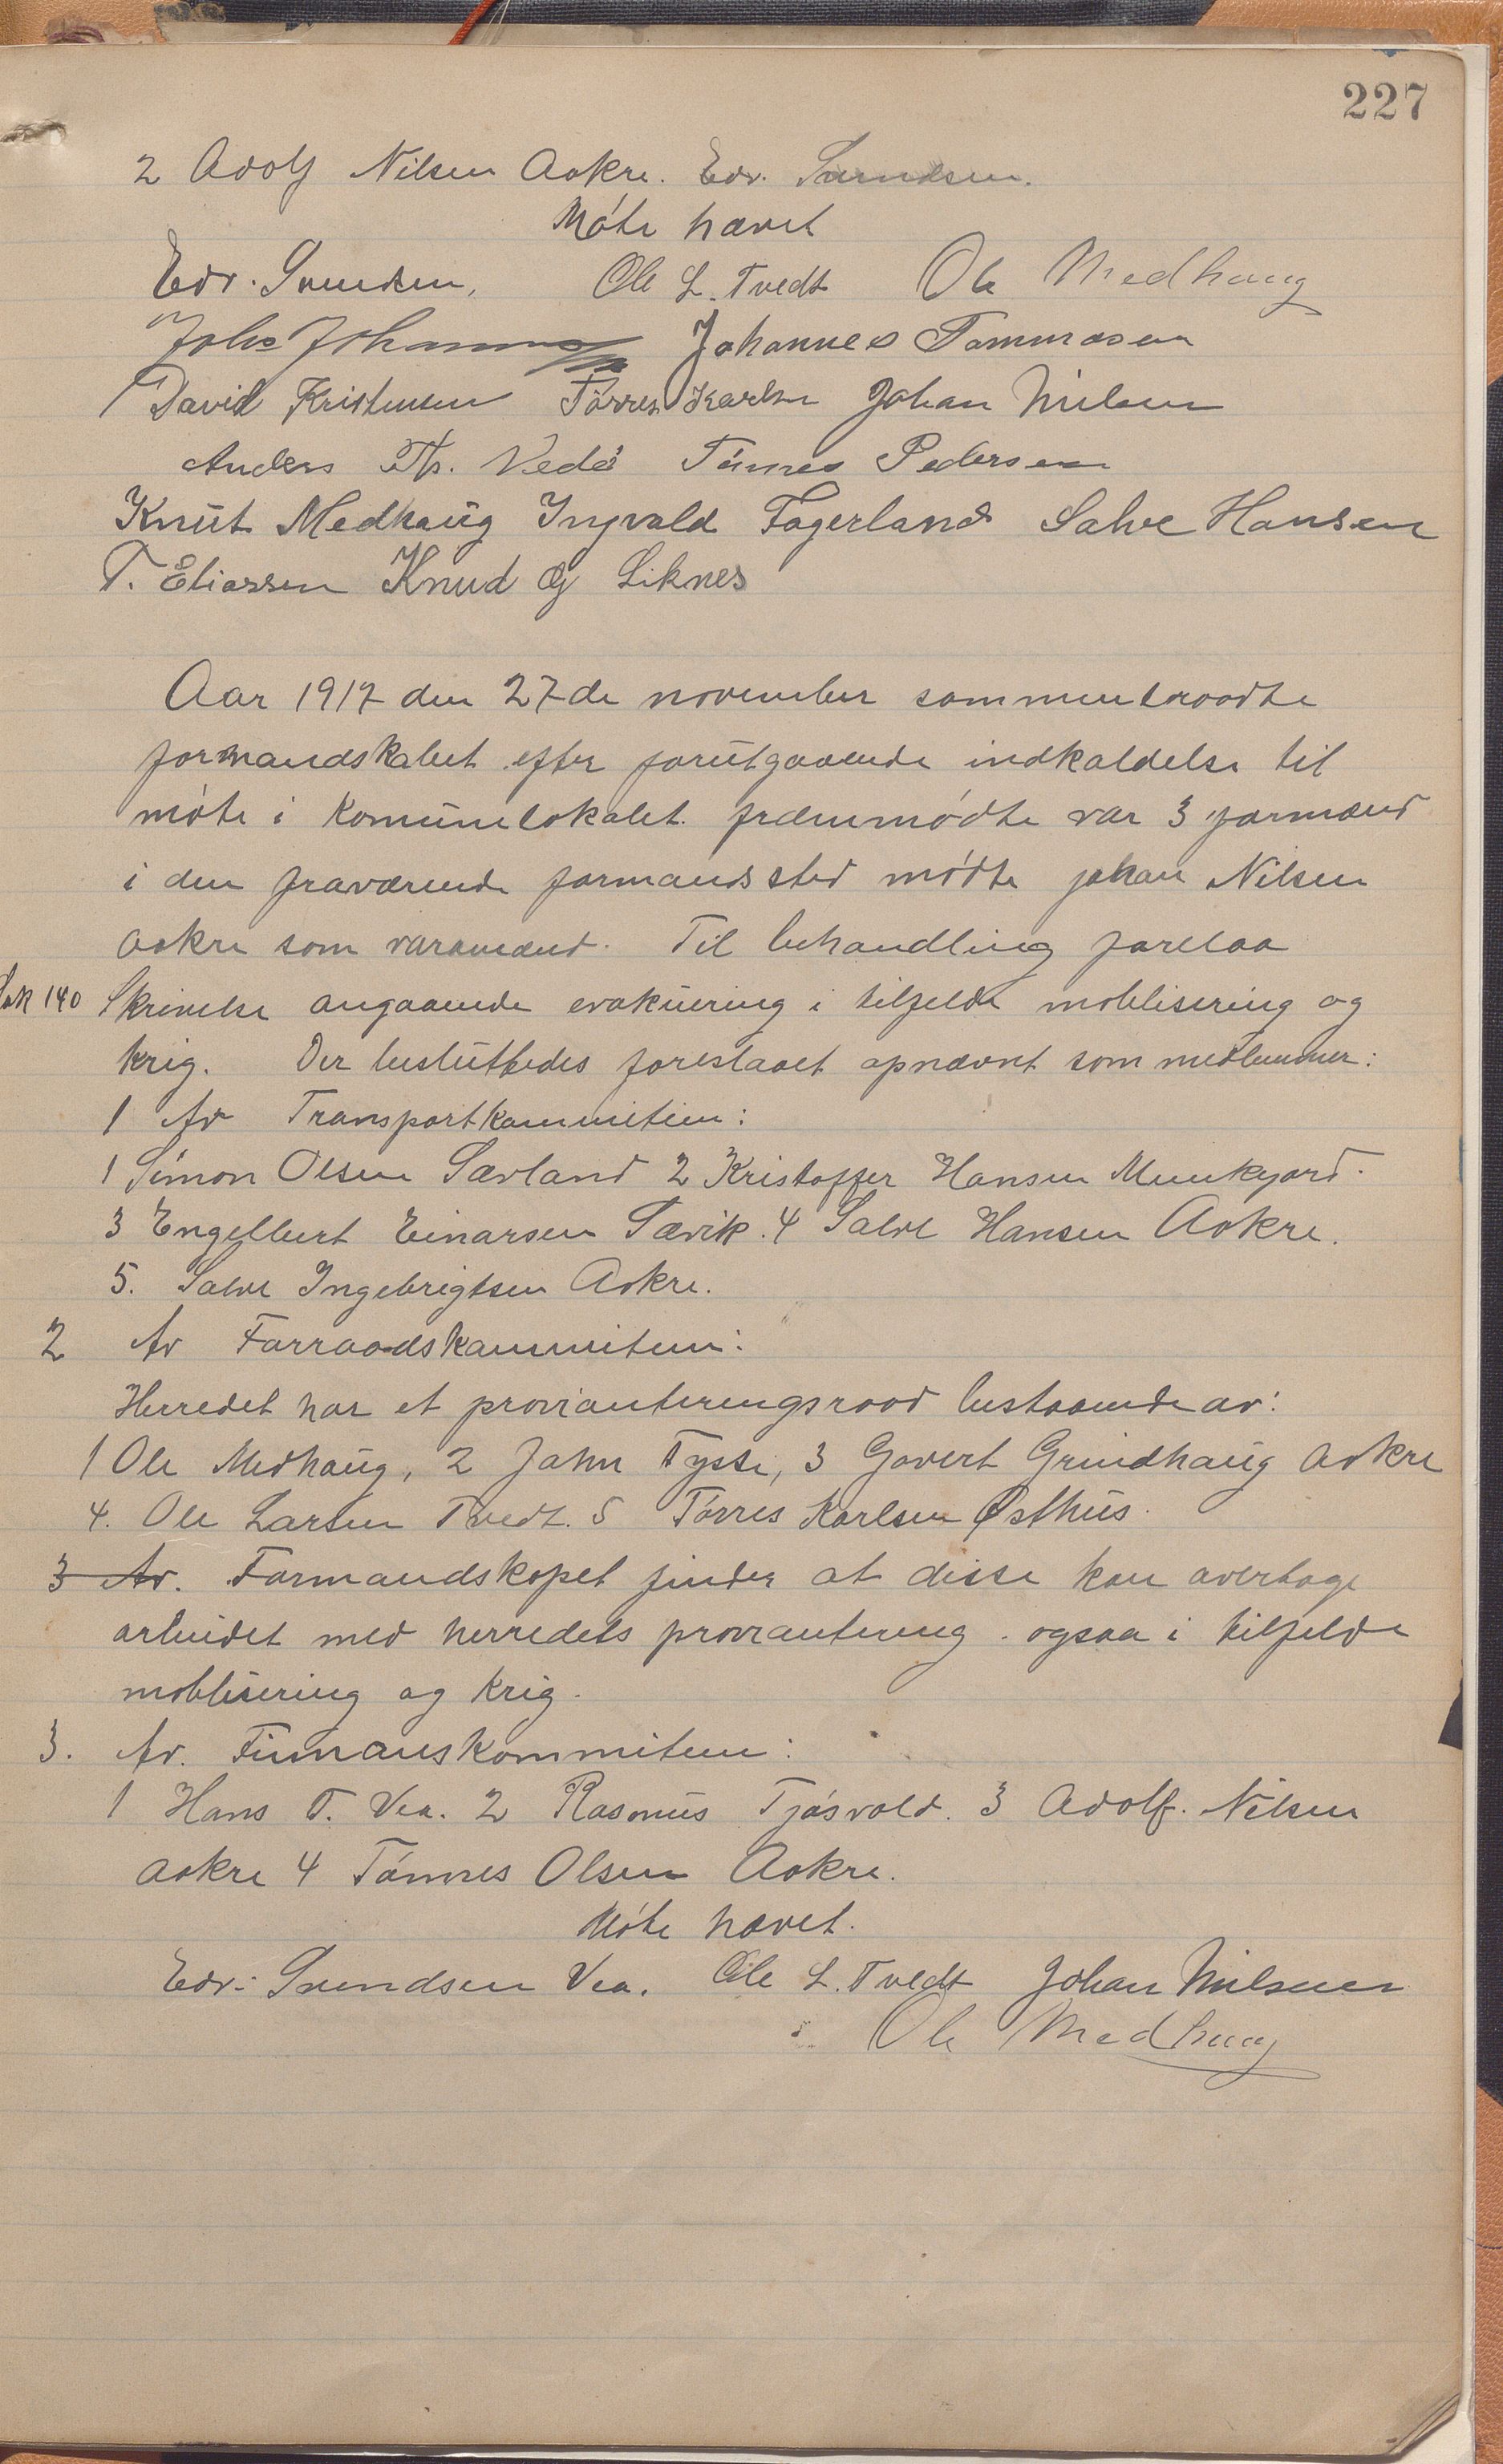 227
2 Adolf Nilsen Aakre. Edv. Svendsen.
Möte hævet
Edv. Svendsen, Ole L. Tvedt Ole Medhaug
Johs Johannessen Johannes Tommasen
David Kristensen Törres Karlsen Johan Nilsen
Anders Th. Vedö Tönnes Pedersen
Knut Medhaug Ingvald Fagerland Salve Hansen
T. Eliassen Knud G Liknes
Aar 1917 den 27de november sammentraadte
formandskabet efter forutgaaende indkaldelse til
möte i Komunelokalet. fremmödte var 3 formænd
i den fraværende formands sted mödte johan Nilsen
Aakre som varamand. Til behandling forelaa
Sak 140 Skrivelse angaaende evakuering i tilfelde moblisering og
krig. Der besluttedes foreslaaet opnævnt som medlemmer:
1 Av Transportkommiteen:
1 Simon Olsen Sævland 2 Kristoffer Hansen Munkejord.
3 Engelbert Einarsen Sævik. 4 Salve Hansen Aakre.
5. Salve Ingebrigtsen Aakre.
2 Av Forraadskommiteen:
Herredet har et provianteringsraad bestaaende av:
1 Ole Medhaug, 2 John Tysse, 3 Govert Grindhaug Aakre
4. Ole Larsen Tvedt. 5 Törres Karlsen Østhus.
3 Av. Formandskapet finder at disse kan overtage
arbeidet med herredets proviantering. ogsaa i tilfelde
moblisering og krig.
3. Av. Finnanskommiteen:
1 Hans T. Vea. 2 Rasmus Tjösvold. 3 Adolf. Nilsen
Aakre 4 Tönnes Olsen Aakre.
Möte hævet.
Edv. Svendsen Vea. Ole L. Tvedt Johan Nilsen
Ole Medhaug